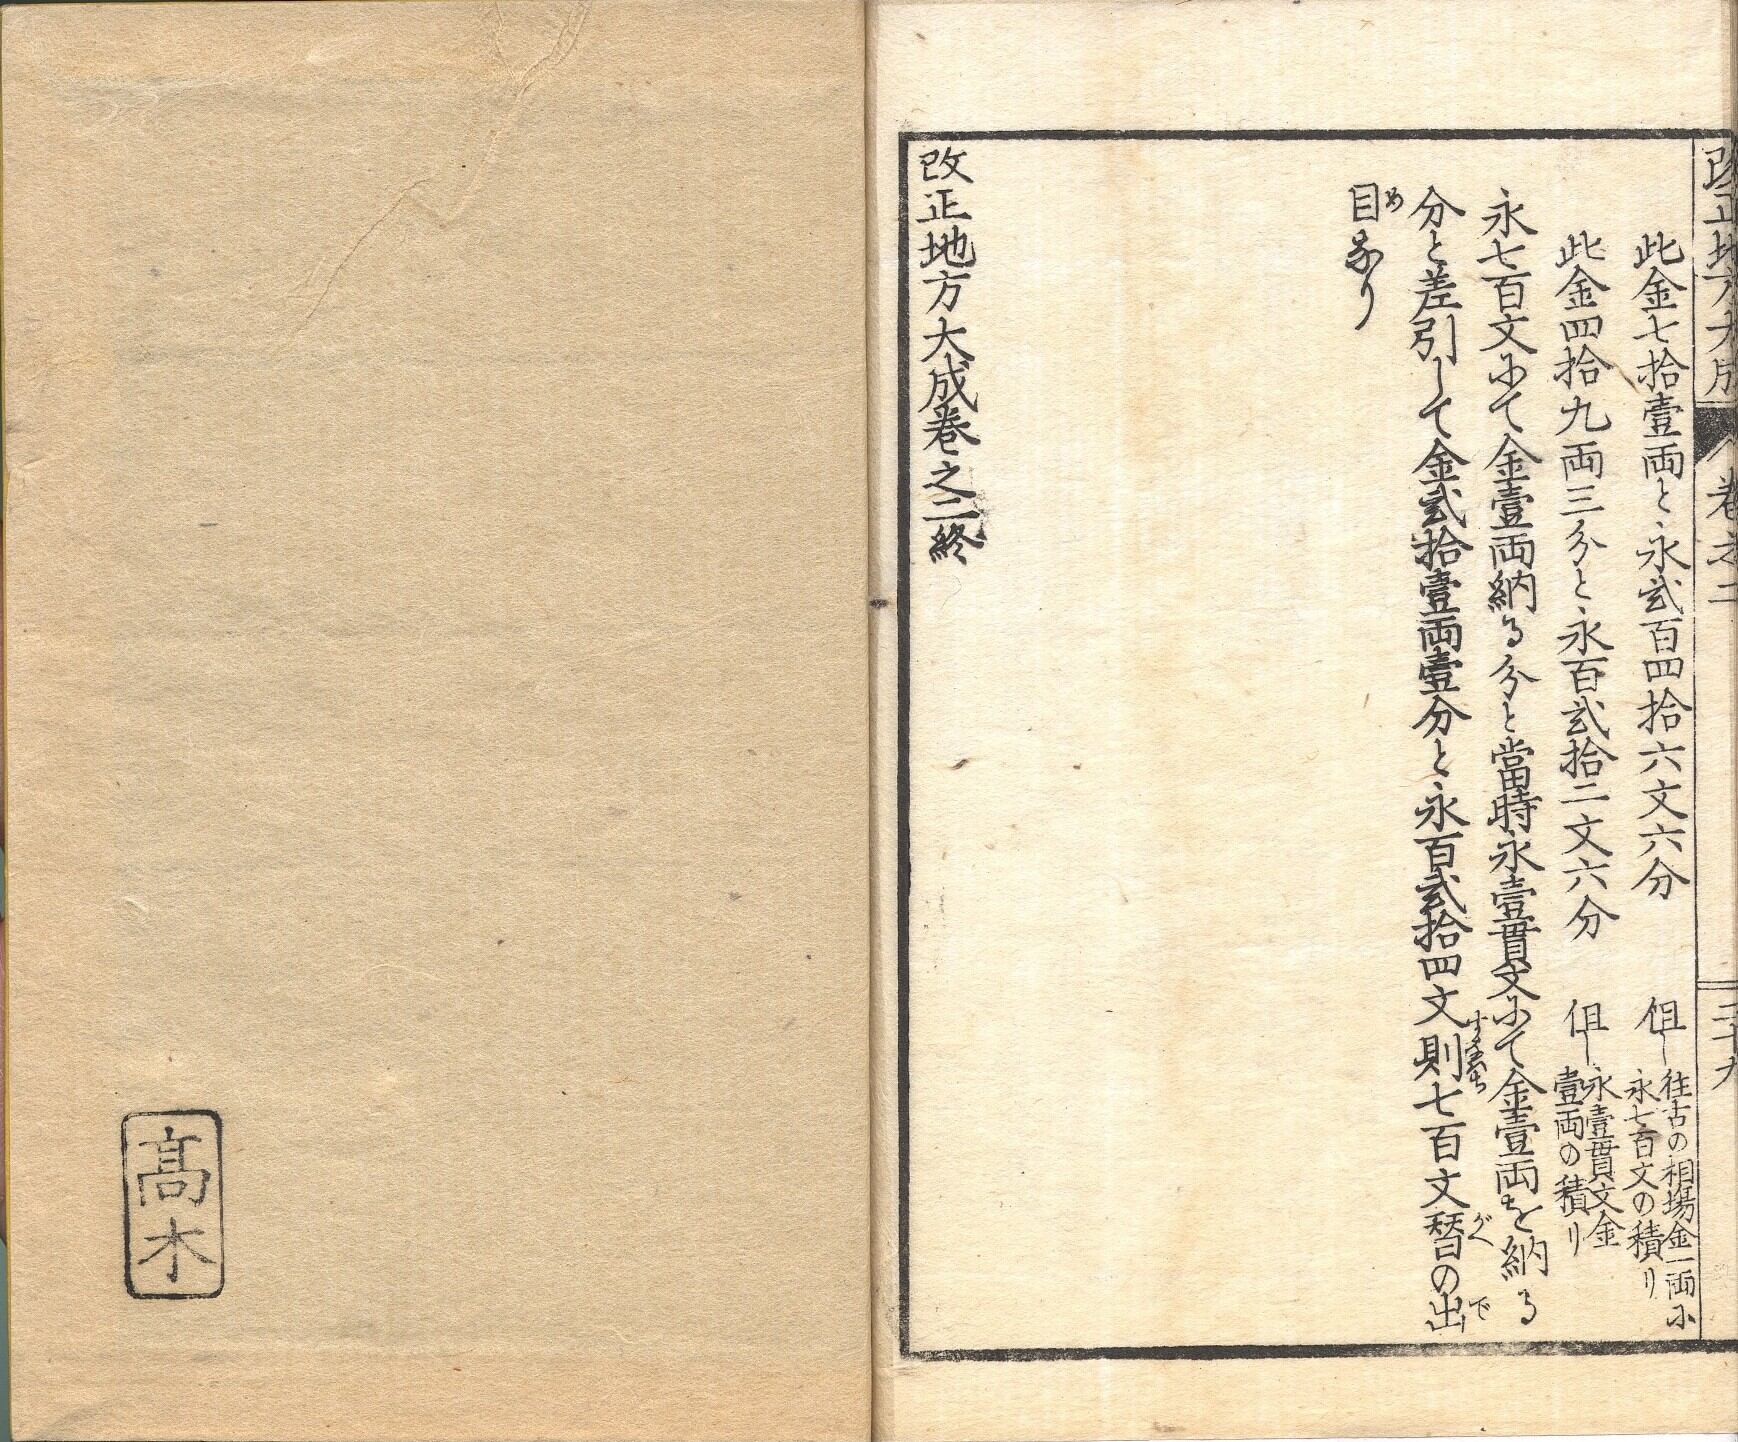 改正地方大成
巻之二
三十九
此金七拾壹両と永弐百四拾六文六分
但し
往古の相場金一両に
永七百文の積り
此金四拾九両三分と永百弐拾二文六分
但し
永壹貫文金
壹両の積り
永七百文にて金壹両納る分と當時永壹貫文にて金壹両を納る
分と差引して金弐拾壹両壹分と永百弐拾四文則七百文替の出
すなはち
がへ
で
目なり
め
改正地方大成巻之二終
髙木